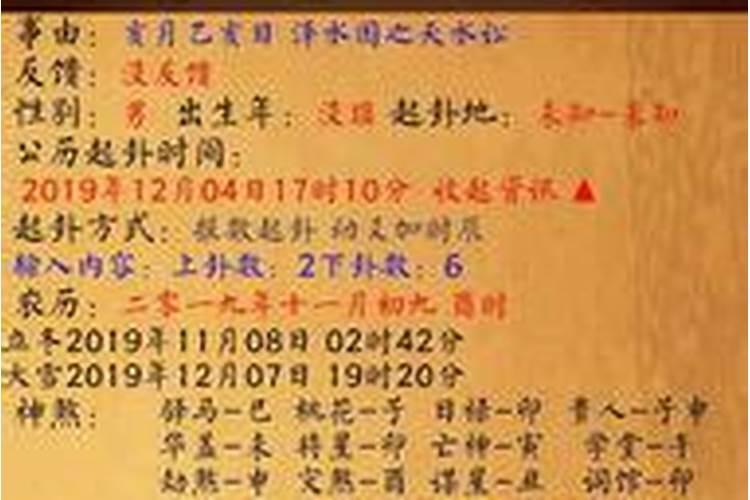 事由：亥月己亥日 泽水困之天水讼
反馈：没反馈
性别：男 出生年：没填 起卦地：未知-未知
公历起卦时间：
2019年12月04日17时10分 收起资讯▲
起卦方式：报数起卦 动爻加时辰
输入内容：上卦数：2下卦数：6
农历：二零一九年十一月初九 酉时
立冬2019年11月08日 02时42分
大雪2019年12月07日 19时20分
神煞：驿马-巳 桃花-子 日禄-卯 贵人-子申
华盖-未 将星-卯 亡神-寅 学堂-
劫煞-申 灾煞-酉 谋星-丑 词馆-卯